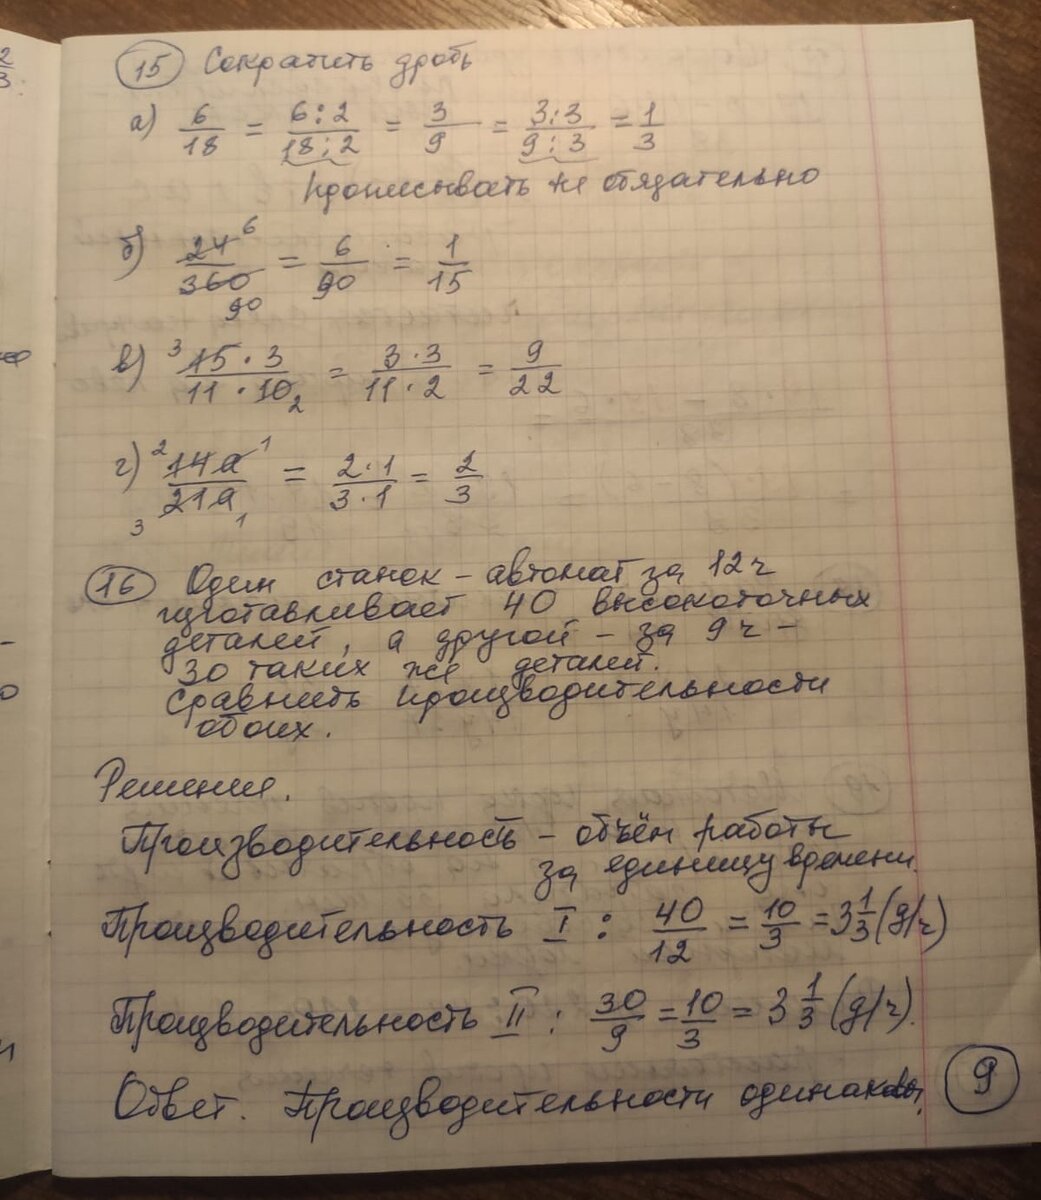 2
3
15 Сократить дробь
а) 6/18 = 6:2/18:2 = 3/9 = 3:3/9:3 = 1/3
прописывать не обязательно
б) 24 6/360 90 = 6/90 = 1/15
в) 3 15·3/11·10 2 = 3·3/11·2 = 9/22
г) 2 14а 1/3 21а 1 = 2·1/3·1 = 2/3
16 Один станок-автомат за 12 ч
изготавливает 40 высокоточных
деталей, а другой - за 9 ч -
30 таких же деталей.
Сравнить производительности
обоих.
Решение.
Производительность - объём работы
за единицу времени.
Производительность I : 40/12 = 10/3 = 3 1/3 (д/ч)
Производительность II : 30/9 = 10/3 = 3 1/3 (д/ч).
Ответ. Производительности одинаковы.
9